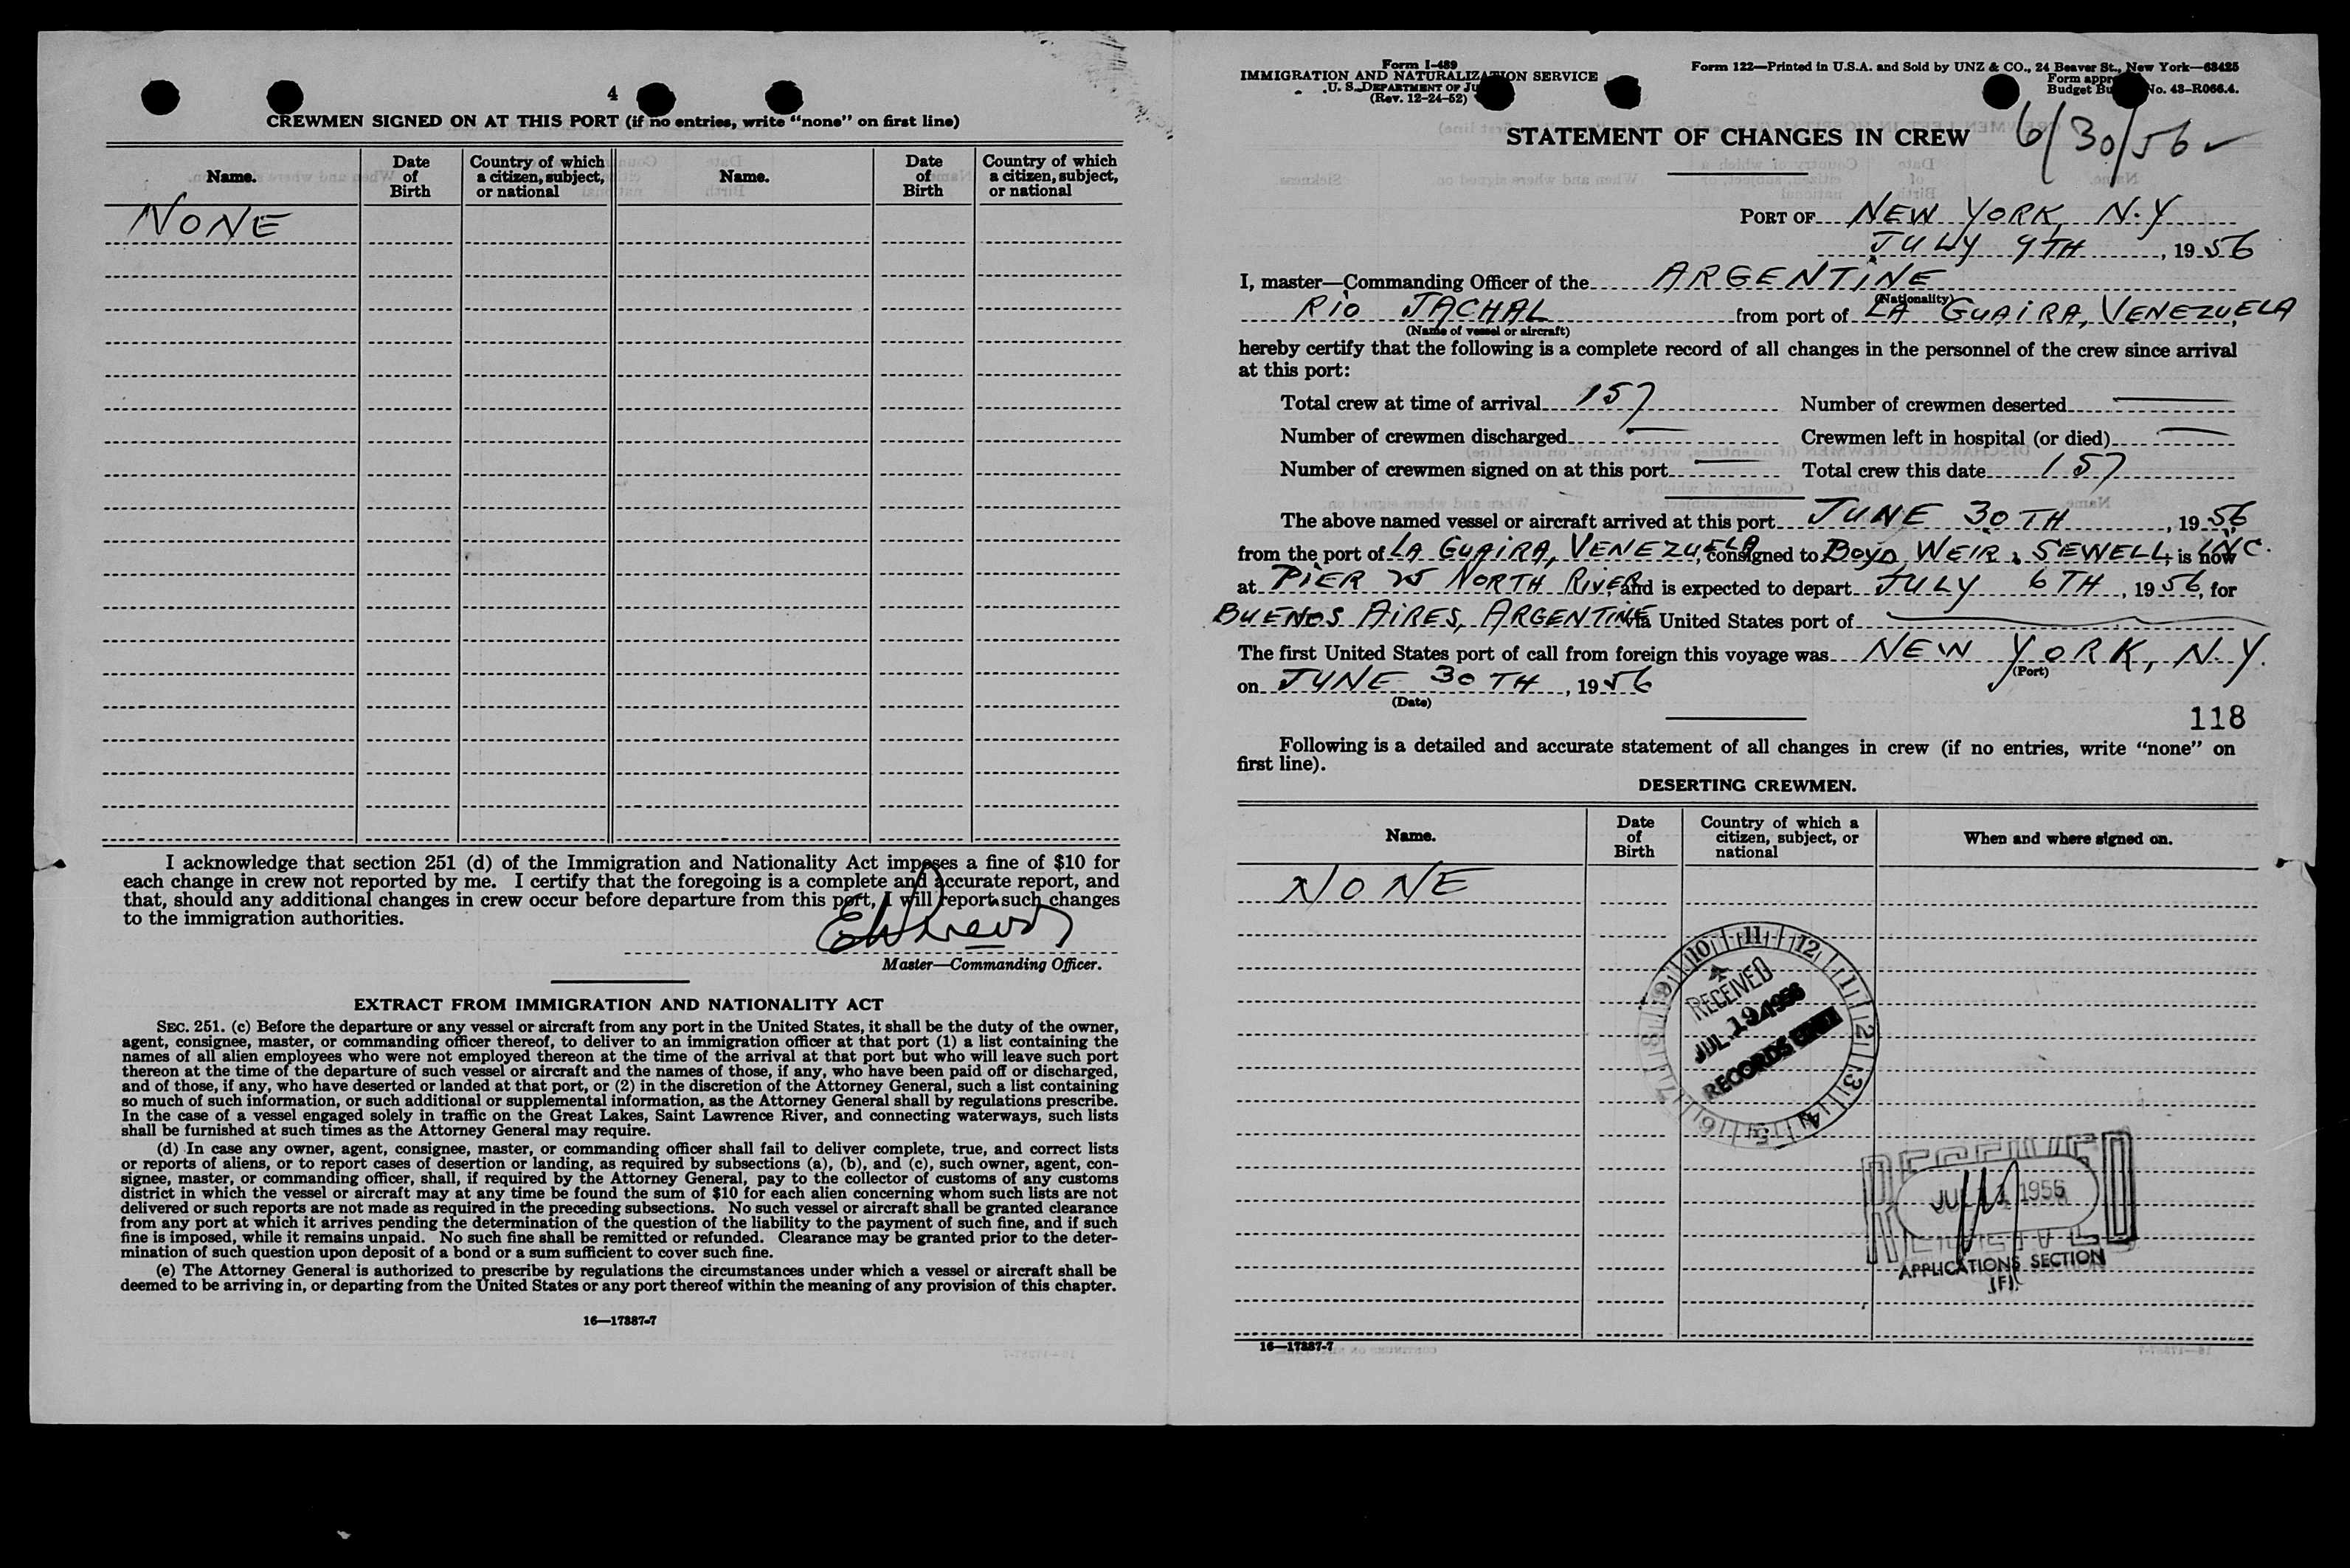 4
CREWMEN SIGNED ON AT THIS PORT (if no entries, write "none" on first line)
Name. Date of Birth Country of which a citizen, subject, or national Name. Date of Birth Country of which a citizen, subject, or national
NONE
I acknowledge that section 251 (d) of the Immigration and Nationality Act imposes a fine of $10 for
each change in crew not reported by me. I certify that the foregoing is a complete and accurate report, and
that, should any additional changes in crew occur before departure from this port, I will report such changes
to the immigration authorities.
Master—Commanding Officer.
EXTRACT FROM IMMIGRATION AND NATIONALITY ACT
SEC. 251. (c) Before the departure or any vessel or aircraft from any port in the United States, it shall be the duty of the owner,
agent, consignee, master, or commanding officer thereof, to deliver to an immigration officer at that port (1) a list containing the
names of all alien employees who were not employed thereon at the time of the arrival at that port but who will leave such port
thereon at the time of the departure of such vessel or aircraft and the names of those, if any, who have been paid off or discharged,
and of those, if any, who have deserted or landed at that port, or (2) in the discretion of the Attorney General, such a list containing
so much of such information, or such additional or supplemental information, as the Attorney General shall by regulations prescribe.
In the case of a vessel engaged solely in traffic on the Great Lakes, Saint Lawrence River, and connecting waterways, such lists
shall be furnished at such times as the Attorney General may require.
(d) In case any owner, agent, consignee, master, or commanding officer shall fail to deliver complete, true, and correct lists
or reports of aliens, or to report cases of desertion or landing, as required by subsections (a), (b), and (c), such owner, agent, con-
signee, master, or commanding officer, shall, if required by the Attorney General, pay to the collector of customs of any customs
district in which the vessel or aircraft may at any time be found the sum of $10 for each alien concerning whom such lists are not
delivered or such reports are not made as required in the preceding subsections. No such vessel or aircraft shall be granted clearance
from any port at which it arrives pending the determination of the question of the liability to the payment of such fine, and if such
fine is imposed, while it remains unpaid. No such fine shall be remitted or refunded. Clearance may be granted prior to the deter-
mination of such question upon deposit of a bond or a sum sufficient to cover such fine.
(e) The Attorney General is authorized to prescribe by regulations the circumstances under which a vessel or aircraft shall be
deemed to be arriving in, or departing from the United States or any port thereof within the meaning of any provision of this chapter.
16—17387-7
Form I-489
IMMIGRATION AND NATURALIZATION SERVICE
U. S. DEPARTMENT OF JU
(Rev. 12-24-52)
Form 122—Printed in U.S.A. and Sold by UNZ & CO., 24 Beaver St., New York—63425
Form appr
Budget Bu No. 43-R066.4.
STATEMENT OF CHANGES IN CREW 6/30/56
PORT OF NEW YORK, N.Y
JULY 9TH, 1956
I, master—Commanding Officer of the ARGENTINE
(Nationality)
RIO JACHAL from port of LA GUAIRA, VENEZUELA
(Name of vessel or aircraft)
hereby certify that the following is a complete record of all changes in the personnel of the crew since arrival
at this port:
Total crew at time of arrival 157 Number of crewmen deserted —
Number of crewmen discharged — Crewmen left in hospital (or died) —
Number of crewmen signed on at this port — Total crew this date 157
The above named vessel or aircraft arrived at this port JUNE 30TH, 1956
from the port of LA GUAIRA, VENEZUELA, consigned to BOYD, WEIR & SEWELL, INC. is now
at PIER 25 NORTH RIVER, and is expected to depart JULY 6TH, 1956, for
BUENOS AIRES, ARGENTINE via United States port of —
The first United States port of call from foreign this voyage was NEW YORK, N.Y.
(Port)
on JUNE 30TH, 1956
(Date)
118
Following is a detailed and accurate statement of all changes in crew (if no entries, write "none" on
first line).
DESERTING CREWMEN.
Name. Date of Birth Country of which a citizen, subject, or national When and where signed on.
NONE
10 11 12 1 2 3 4 5 6 7 8 9
RECEIVED
JUL 19 1956
RECORDS UNIT
JUL 1956
APPLICATIONS SECTION
(F)
16—17387-7